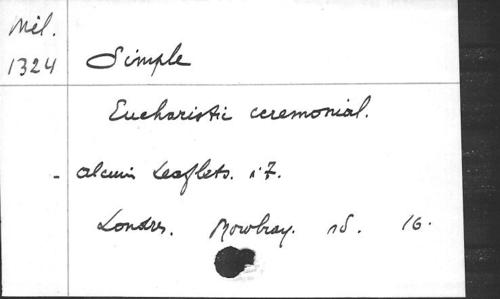 Mil.
1324 Simple
Eucharistic ceremonial.
- Alcuin Leaflets. n° 7.
Londres. Mowbray. sd. 16.